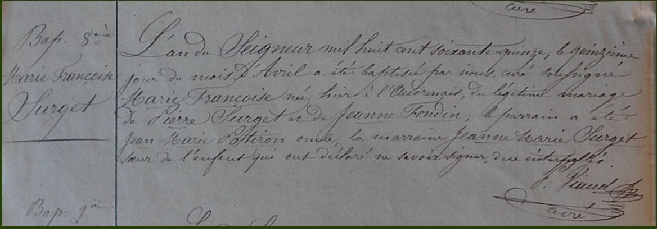 curé
Bap. 8ème
Marie Françoise
Surget
L'an du Seigneur mil huit cent soixante quinze, le quinzième
jour du mois d'Avril a été baptisée par nous, curé soussigné
Marie Françoise née, hier à l'Auvernais, du légitime mariage
de Pierre Surget et de Jeanne Fondin; le parrain a été
Jean Marie oncle, la marraine Jeanne Marie Surget
sœur de l'enfant qui ont déclaré ne savoir signer, due interpellés.
curé
Bap. 9e